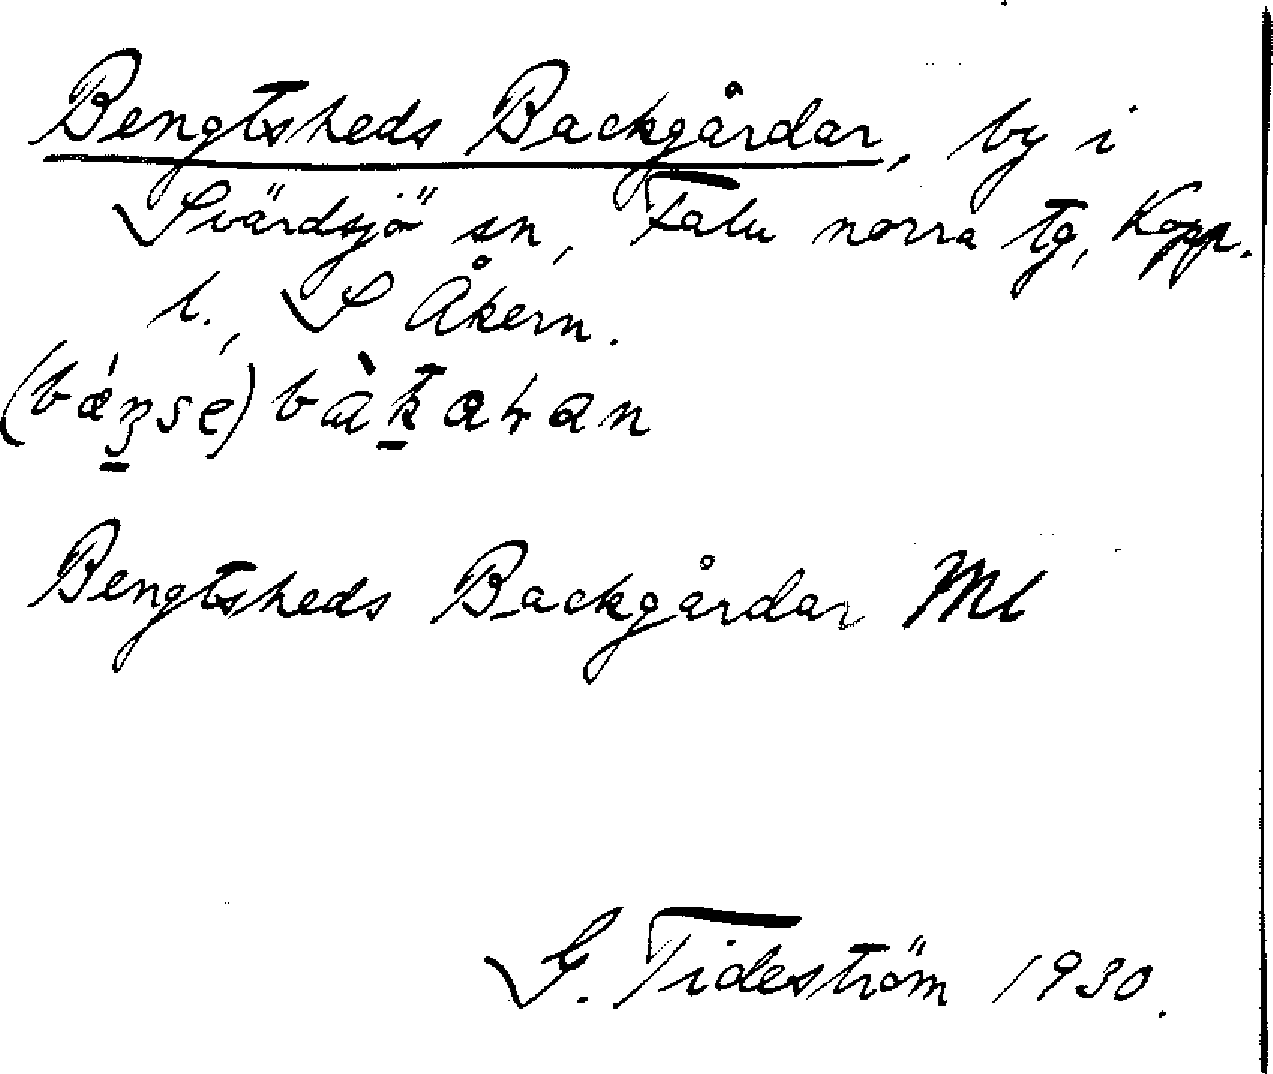 Bengtsheds Backgårdar, by i
Svärdsjö sn, Falu norra tg, Kopp.
l., S Åkern.
Bengtsheds Backgårdar Ml
G. Tideström 1930.